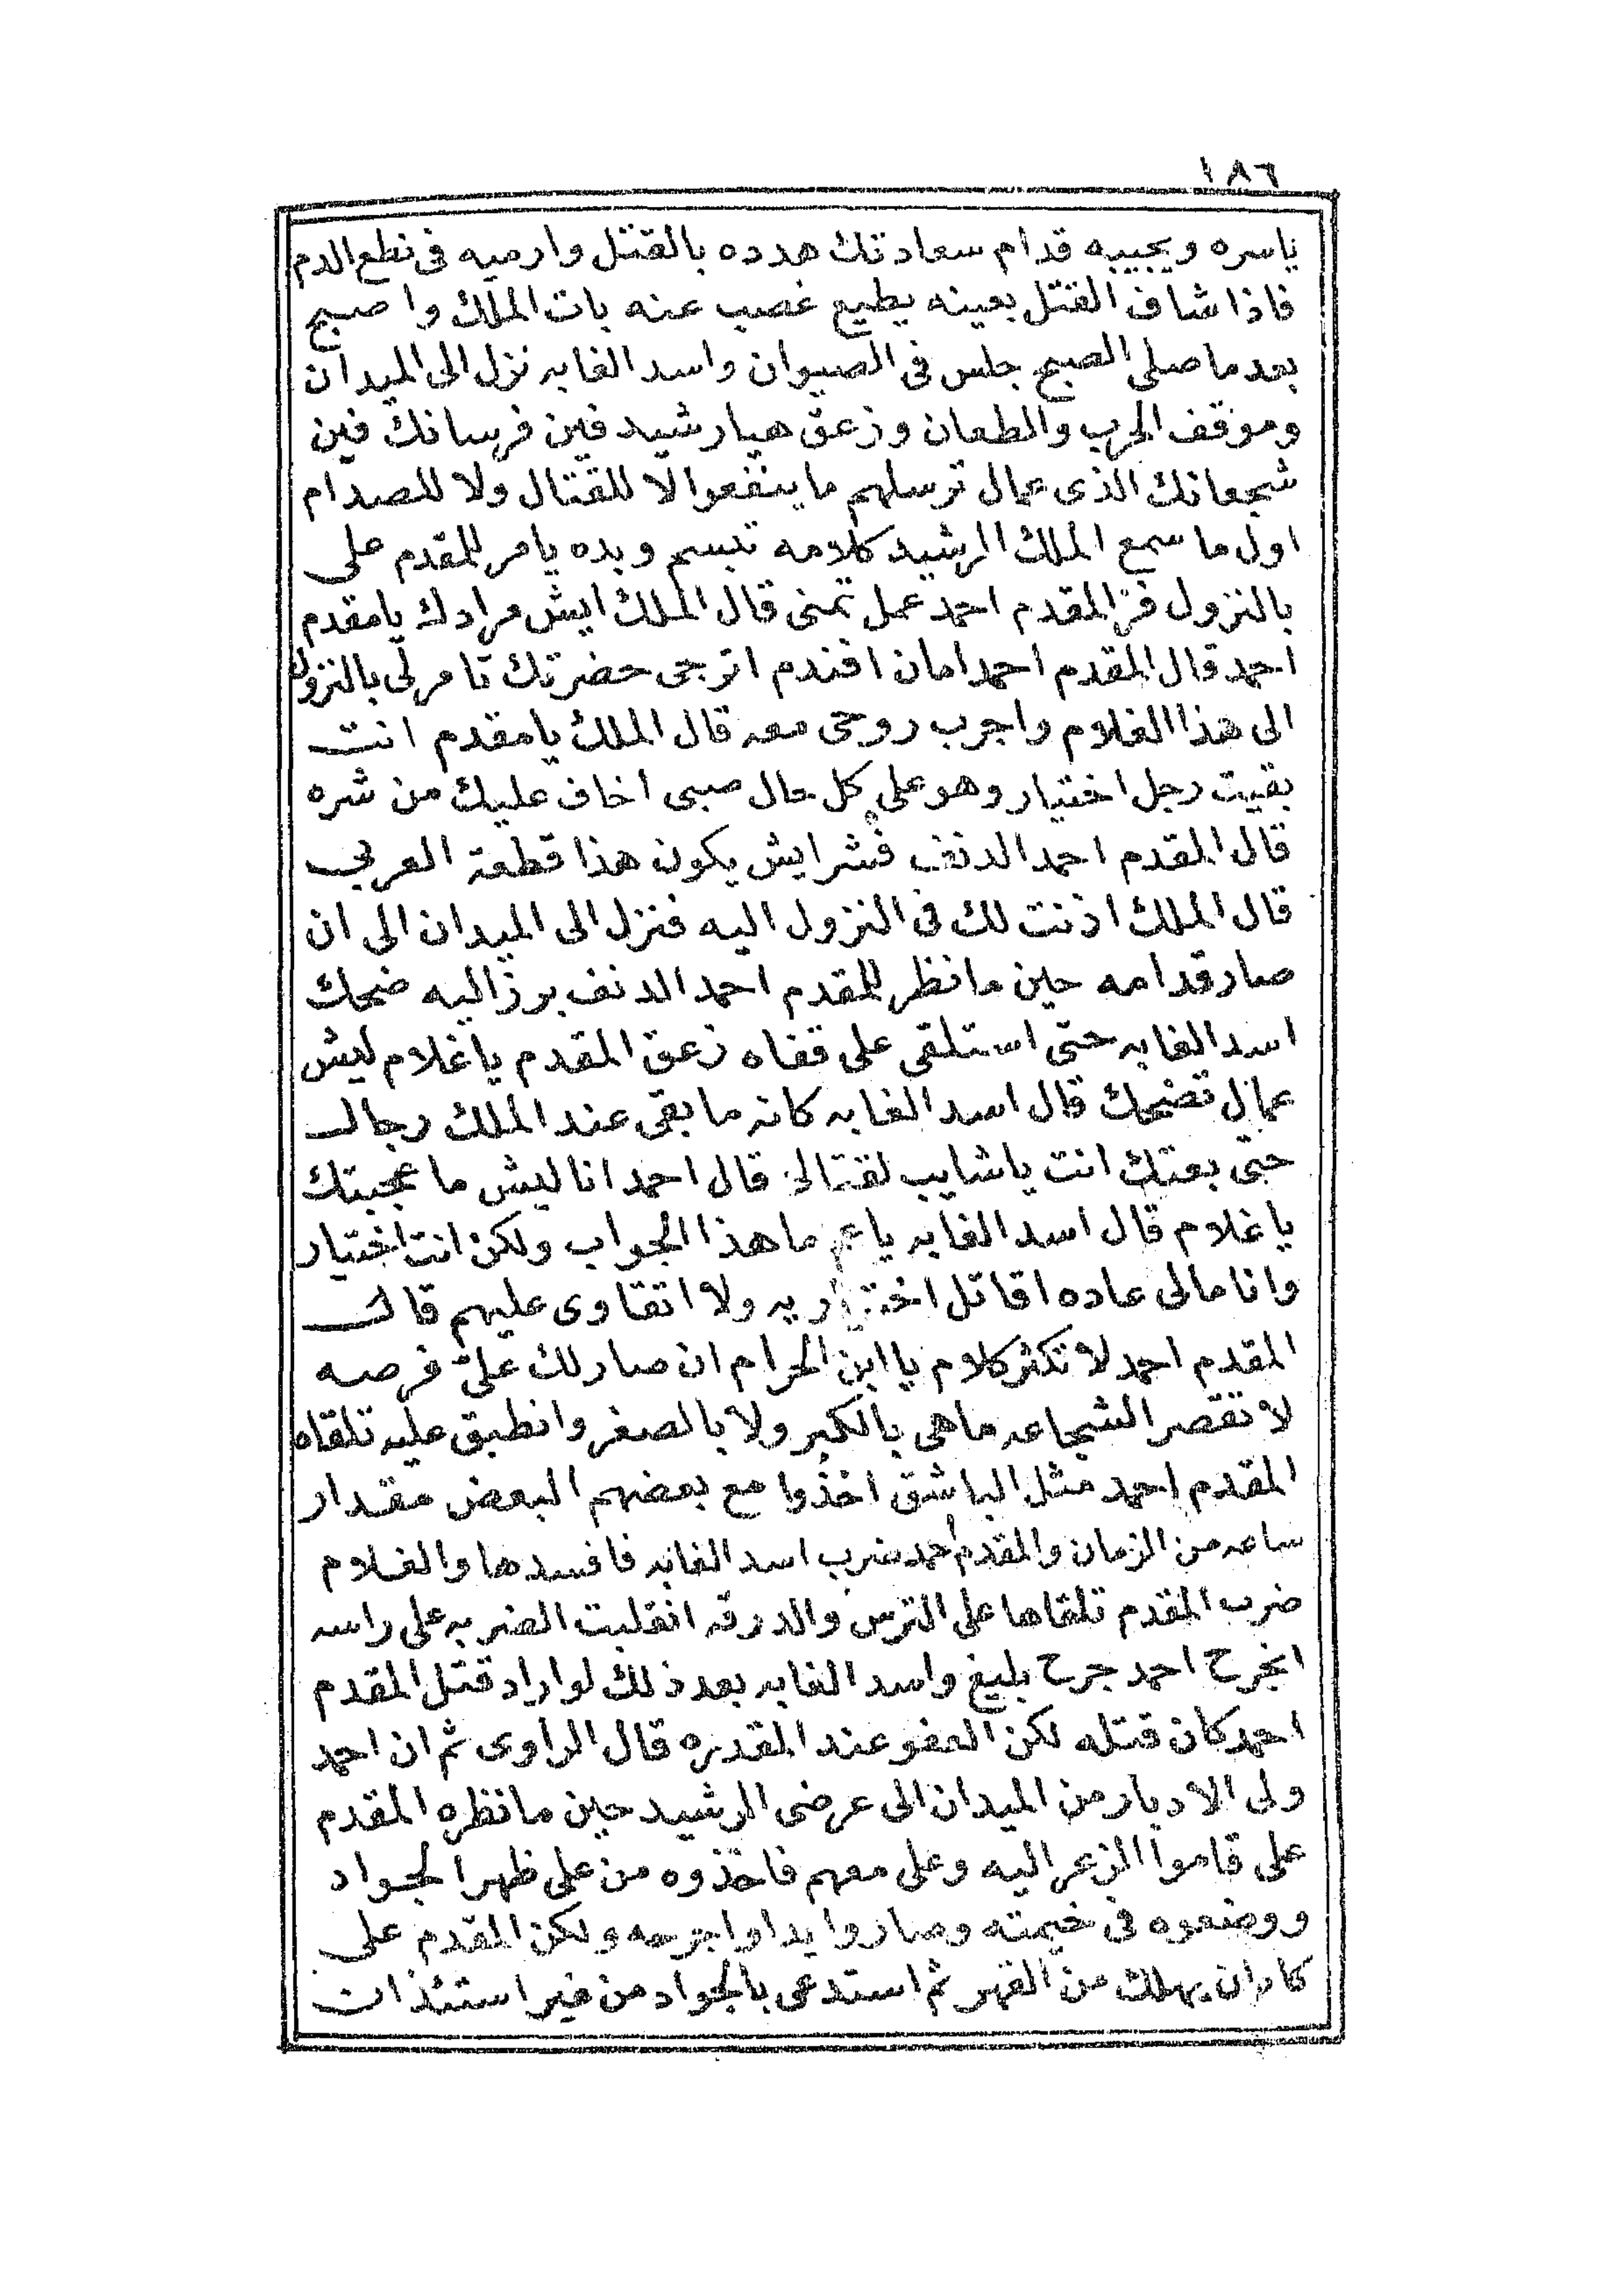 ١٨٦
ياسره ويجيبه قدام سعادتك هدده بالقتل وارميه فى نطع الدم
فاذا شاف القتل بعينه يطيع غصب عنه بات الملك واصبح
بعد ما صلى الصبح جلس فى الصيوان واسد الغابه نزل الى الميدان
وموقف الحرب والطعان وزعق هيا رشيد فين فرسانك فين
شجعانك الذى عمال ترسلهم ما ينفعوا لا للقتال ولا للصدام
اول ما سمع الملك الرشيد كلامه تبسم وبده يامر للمقدم على
بالنزول فز المقدم احمد عمل تمنى قال الملك ايش مرادك يا مقدم
احمد قال المقدم احمد امان افندم اترجى حضرتك تامر لى بالنزول
الى هذا الغلام واجرب روحى معه قال الملك يا مقدم انت
بقيت رجل اختيار وهو على كل حال صبى اخاف عليك من شره
قال المقدم احمد الدنف فشر ايش يكون هذا قطعة العربى
قال الملك اذنت لك فى النزول اليه فنزل الى الميدان الى ان
صار قدامه حين ما نظر للمقدم احمد الدنف برز اليه ضحك
اسد الغابه حتى استلقى على قفاه زعق المقدم يا غلام ليش
عمال تضحك قال اسد الغابه كانه ما بقى عند الملك رجال
حتى بعتك انت يا شايب لقتالى قال احمد انا ليش ما عجبتك
يا غلام قال اسد الغابه يا عم ما هذا الجواب ولكن انت اختيار
وانا مالى عاده اقاتل اختياريه ولا اتقاوى عليهم قال
المقدم احمد لا تكثر كلام يا ابن الحرام ان صار لك علىّ فرصه
لا تقصر الشجاعه ما هى بالكبر ولا بالصغر وانطبق عليه تلقاه
المقدم احمد مثل الباشق اخذوا مع بعضهم البعض مقدار
ساعه من الزمان والمقدم احمد ضرب اسد الغابه فافسدها والغلام
ضرب المقدم تلقاها على الترس والدرقه انقلبت الضربه على راسه
انجرح احمد جرح بليغ واسد الغابه بعد ذلك لو اراد قتل المقدم
احمد كان قتله لكن العفو عند المقدره قال الراوى ثم ان احمد
ولى الادبار من الميدان الى عرضى الرشيد حين ما نظره المقدم
على قاموا الزعر اليه وعلى معهم فاخذوه من على ظهر الجواد
ووضعوه فى خيمته وصاروا يداوا جرحه ولكن المقدم على
كاد ان يهلك من القهر ثم استدعى بالجواد من غير استئذان